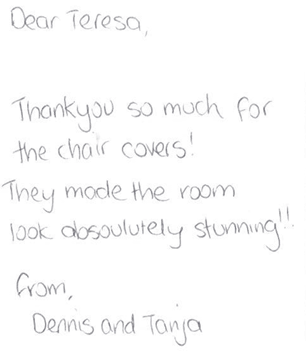 Dear Teresa,
Thankyou so much for
the chair covers!
They made the room
look absoulutely stunning!!
From,
Dennis and Tanja